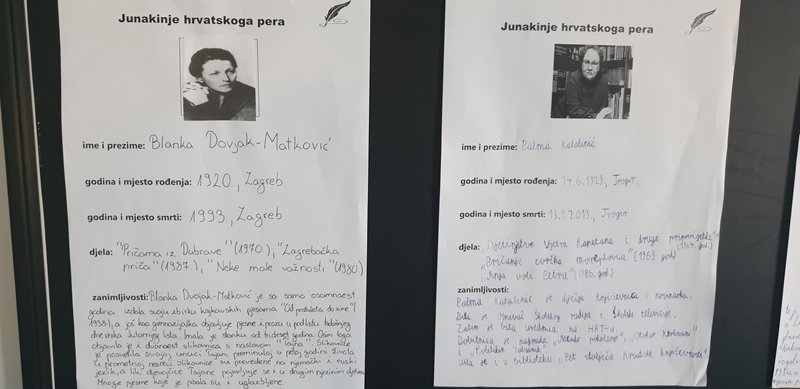 Junakinje hrvatskoga pera
ime i prezime: Blanka Dovjak-Matković
godina i mjesto rođenja: 1920., Zagreb
godina i mjesto smrti: 1993., Zagreb
djela: "Pričama iz Dubrave" (1970.), "Zagrebačka
priča" (1987.), "Neke male važnosti" (1980.)
zanimljivosti: Blanka Dvojak-Matković je sa samo osamnaest
godina izdala svoju zbirku kajkavskih pjesama "Od proteleta do zime" (
1938.), a još kao gimnazijalka objavljuje pjesme i prozu u podlistu
dnevnika Jutarnjeg lista. Imala je stanke od trideset godina. Osim toga
objavila je i dvanaest slikovnica s naslovom "Tajna". Slikovnice
je posvetila svojoj unuci Tajani preminuloj u petoj godini života
u prometnoj nesreći. Slikovnice su prevedene na njemački i
jezik, a lik djevojčice Tajane pojavljuje se i u drugim njezinim djelima.
Mnoge pjesme koje je pisala su i uglazbljene.
Junakinje hrvatskoga pera
ime i prezime: Palma Katalinić
godina i mjesto rođenja: 14.6.1927., Trogir
godina i mjesto smrti: 13.9.2013., Trogir
djela: „Djetinjstvo Vjetra Kapetana i druge pripovijetke"
(1964. god.)
„Pričanje cvrčka moreplovca" (1969. god.)
„Anja voli Petra" (1986. god.)
zanimljivosti:
Palma Katalinić je dječja književnica i novinarka.
Bila je školskog radija i školske televizije.
Zatim je bila urednica na HRT-u.
Dobitnica je nagrada „Mlado pokoljenje", „
i
i u biblioteku „Pet stoljeća hrvatske književnosti".